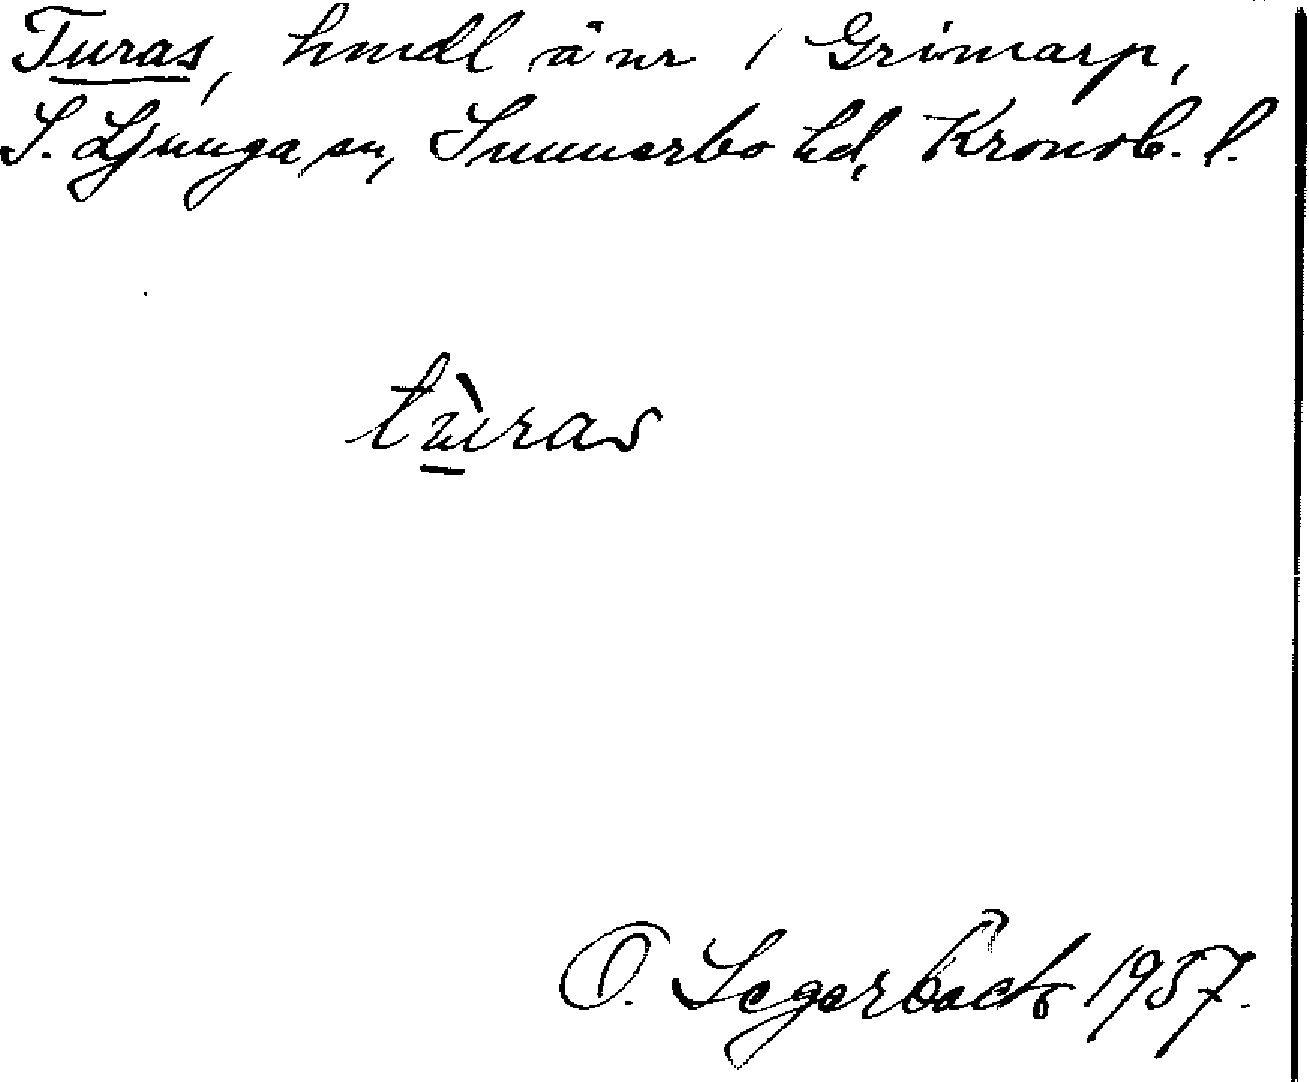 Turas, hmdl å nr 1 Grimarp,
S. Ljunga sn, Sunnerbo hd, Kronob. l.
tùras
O. Segerbäck 1957.